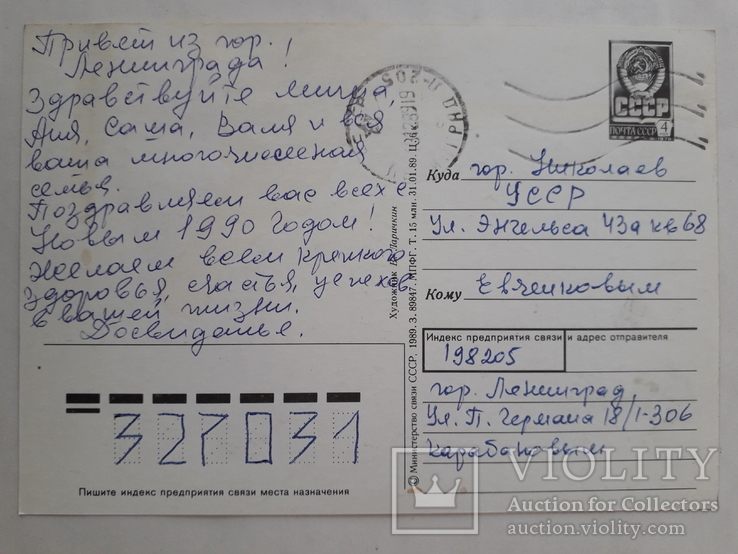 Привет из гор.
Ленинграда!
Здравствуйте Миша,
Аня, Саша, Валя и вся
ваша многочисленая
семья.
Поздравляем вас всех с
Новым 1990 Годом!
Желаем всем крепкого
здоровья, счастья, успехов
в вашей жизни.
Досвиданье.
СССР
ПОЧТА СССР
4
Куда гор. Николаев
УССР
Ул. Энгельса 43а кв 68
Кому Евченковым
Индекс предприятия связи и адрес отправителя
198205
гор. Ленинград,
Ул. П. Германа 18/1-306
Карабановым
327031
Пишите индекс предприятия связи места назначения
Художник В. Ларичкин
© Министерство связи СССР, 1989. З. 89847. МПФГ. Т. 15 млн. 31.01.89. Ц.
VIOLITY
Auction for Collectors
auction.violity.com